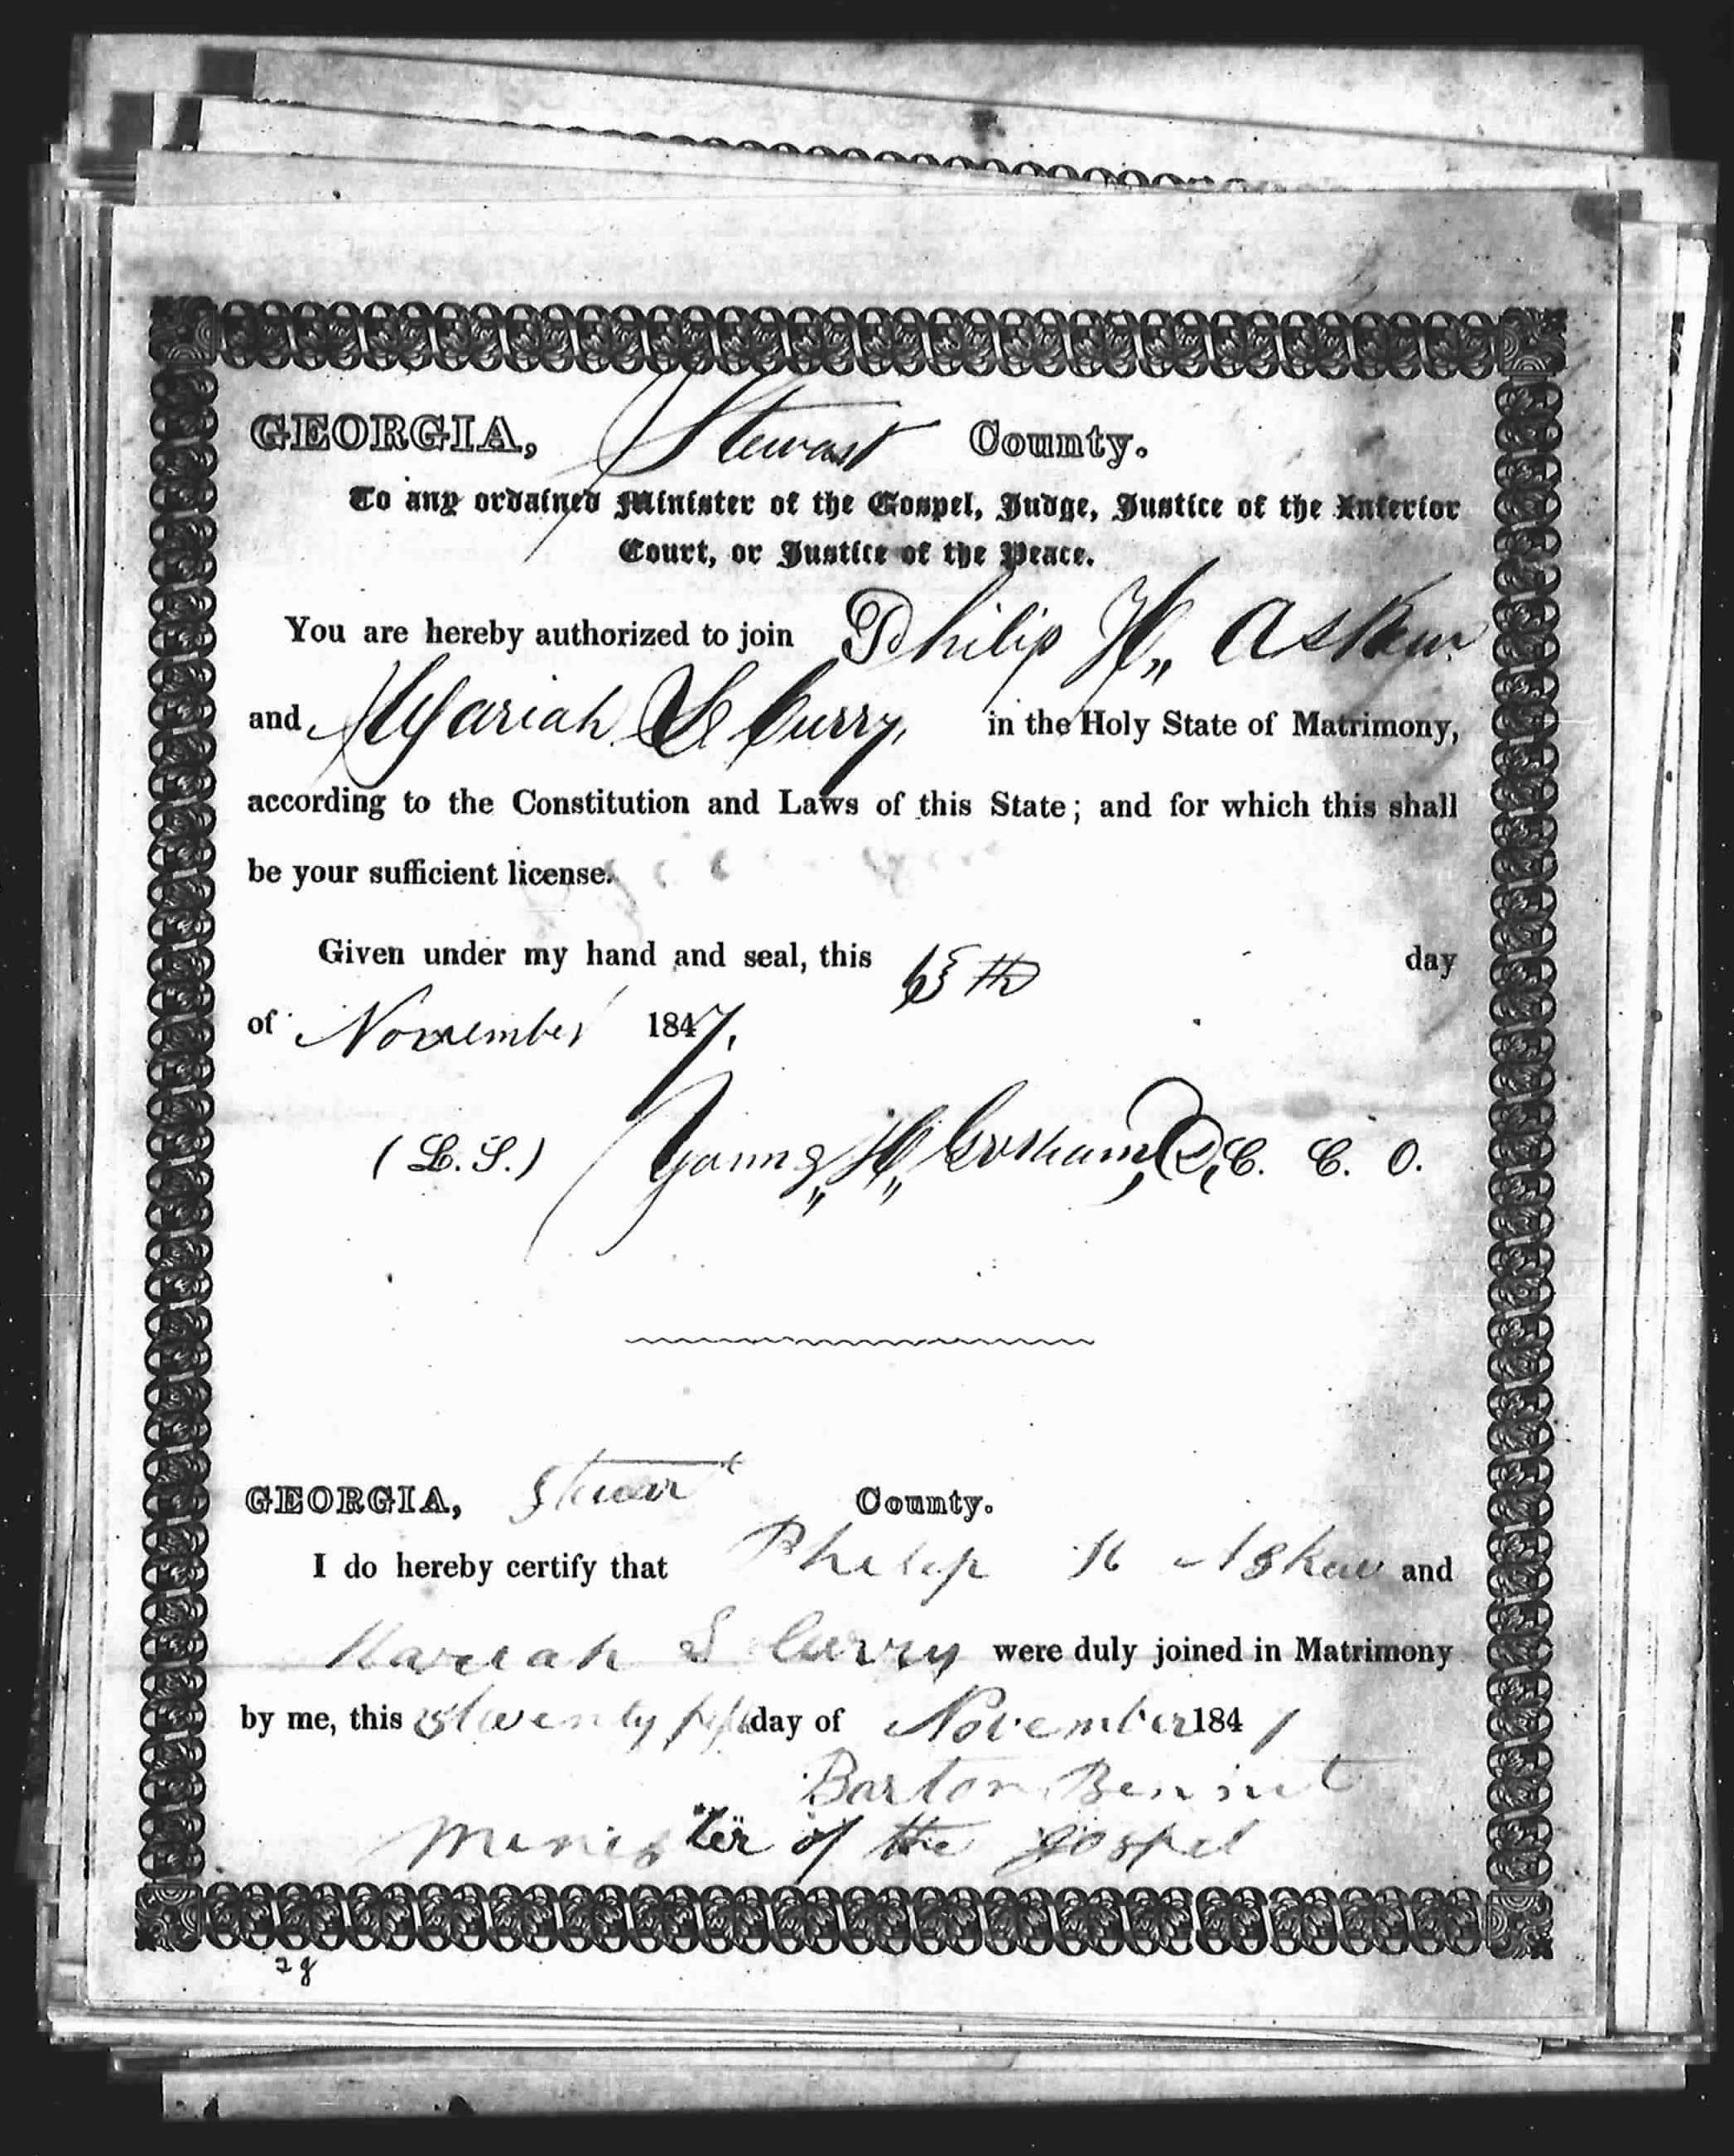 GEORGIA, Stewart County.
To any ordained Minister of the Gospel, Judge, Justice of the Inferior
Court, or Justice of the Peace.
You are hereby authorized to join Philip H,, Askew
and Mariah S Curry, in the Holy State of Matrimony,
according to the Constitution and Laws of this State; and for which this shall
be your sufficient license.
Given under my hand and seal, this th day
of November 1847.
(L.S.) Young,, H,, Gorham, D, C. C. O.
GEORGIA, Stewart County.
I do hereby certify that Philip H Askew and
Mariah S Curry were duly joined in Matrimony
by me, this twenty day of November 1847
Barton Bennet
Minister of the gospel
28